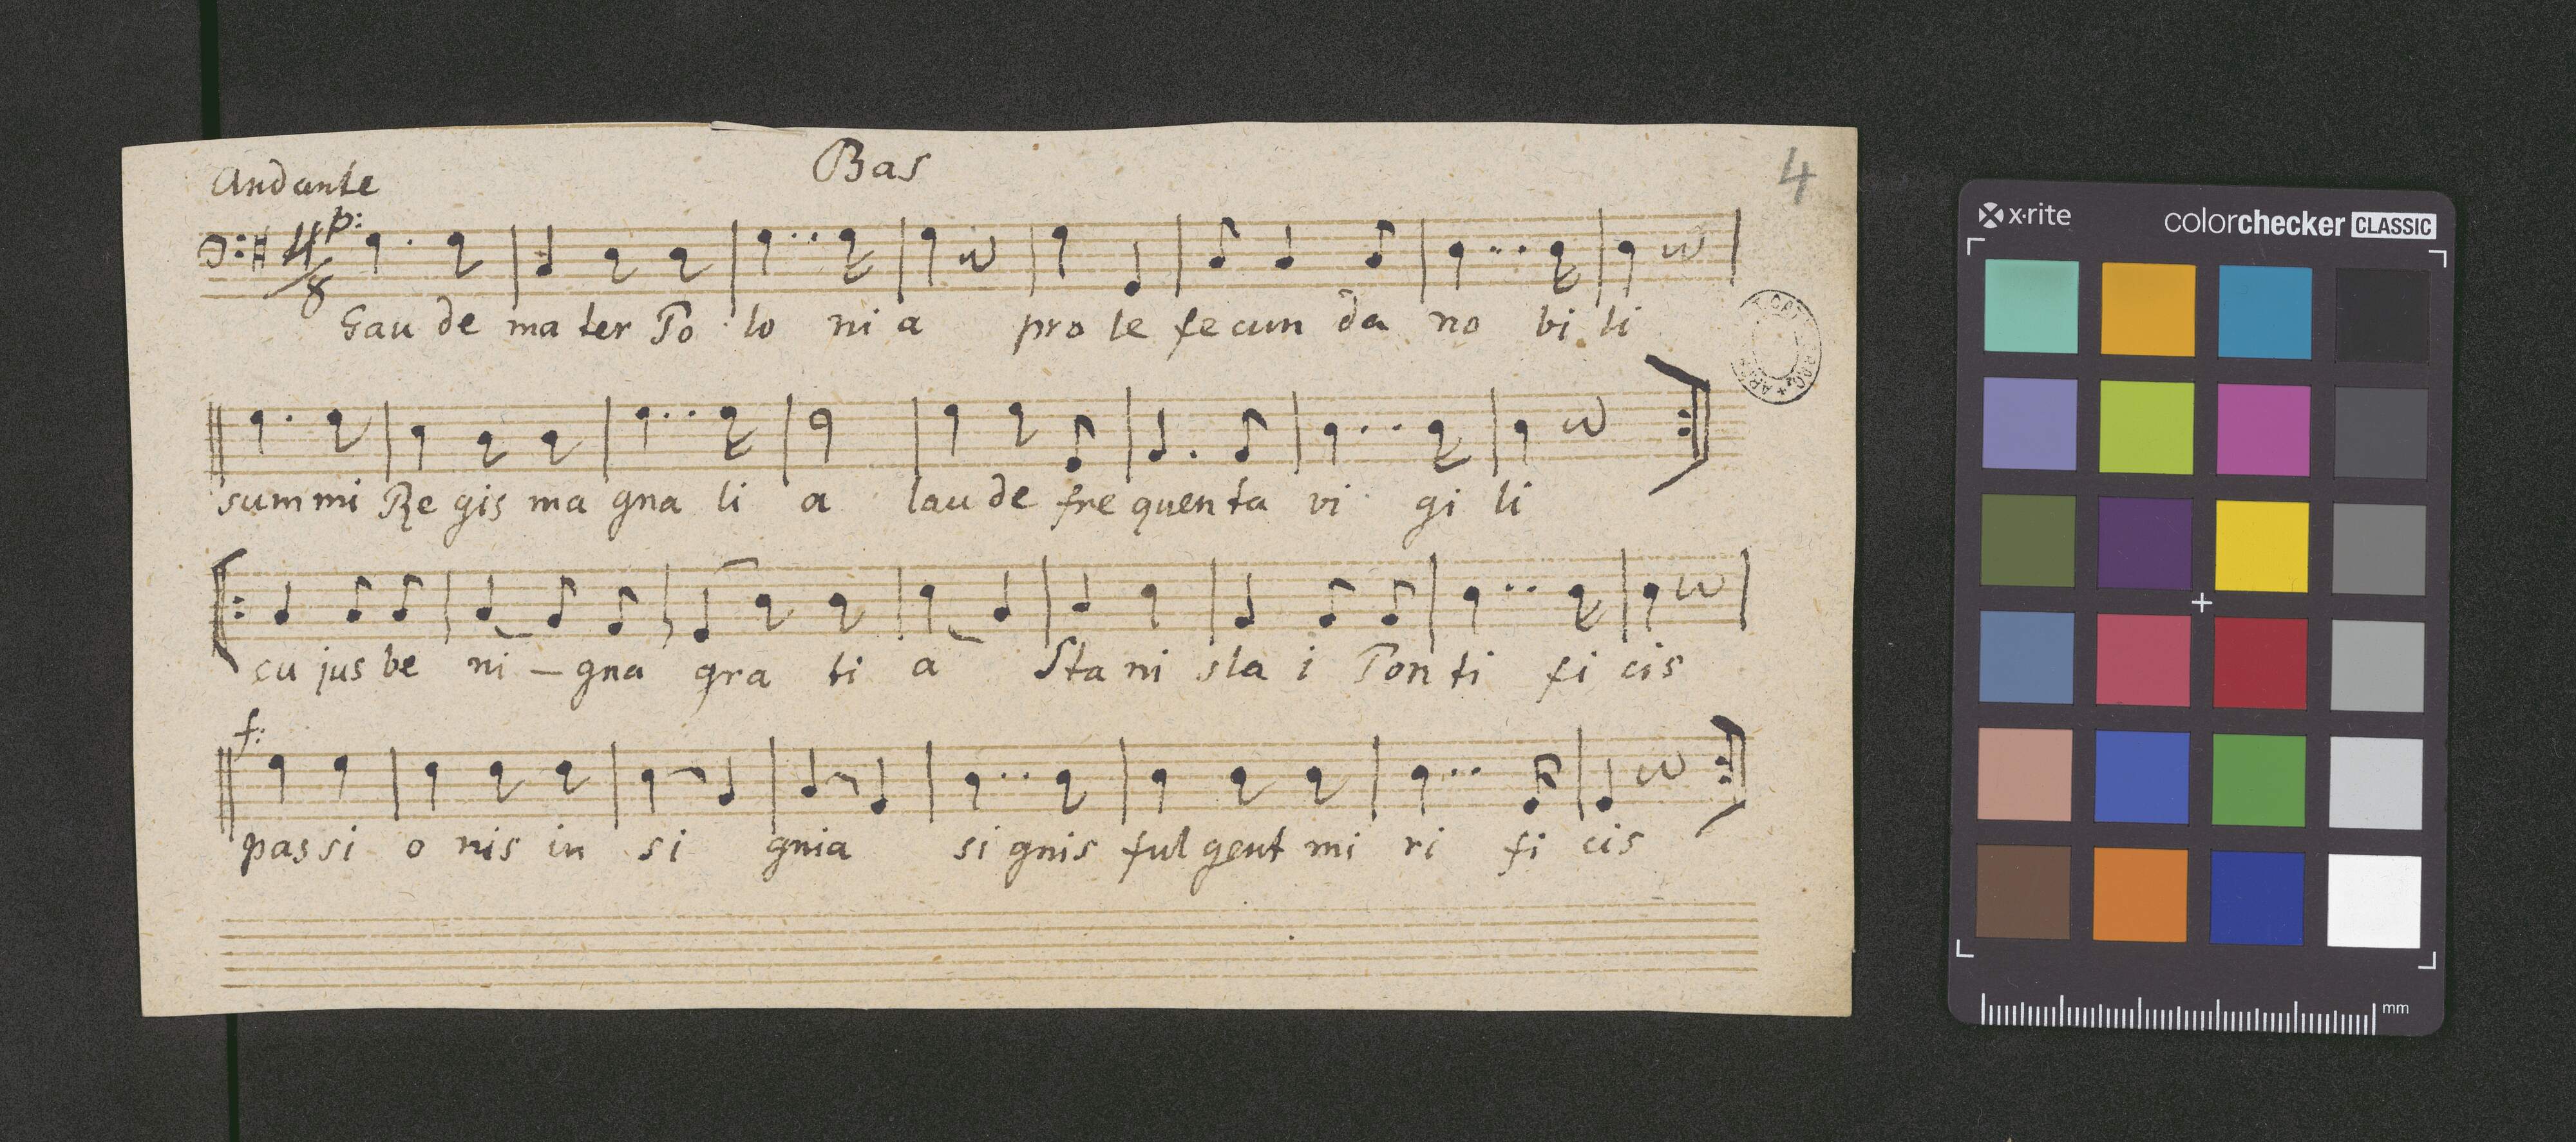 Bas
4
Andante
p:
4/8
Gau de ma ter Po lo ni a pro le fecun da no bi li
summi Re gis ma gna li a lau de fre quenta vi gi li
cu jus be ni – gna gra ti a Sta ni sla i Pon ti fi cis
f:
passi o nis in si gnia si gnis ful gent mi ri fi cis
x·rite
colorchecker CLASSIC
mm